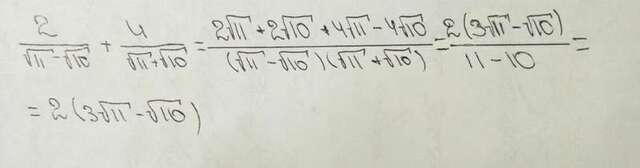 2/(√11-√10) + 4/(√11+√10) = (2√11+2√10+4√11-4√10)/((√11-√10)(√11+√10)) = 2(3√11-√10)/(11-10) =
= 2(3√11-√10)